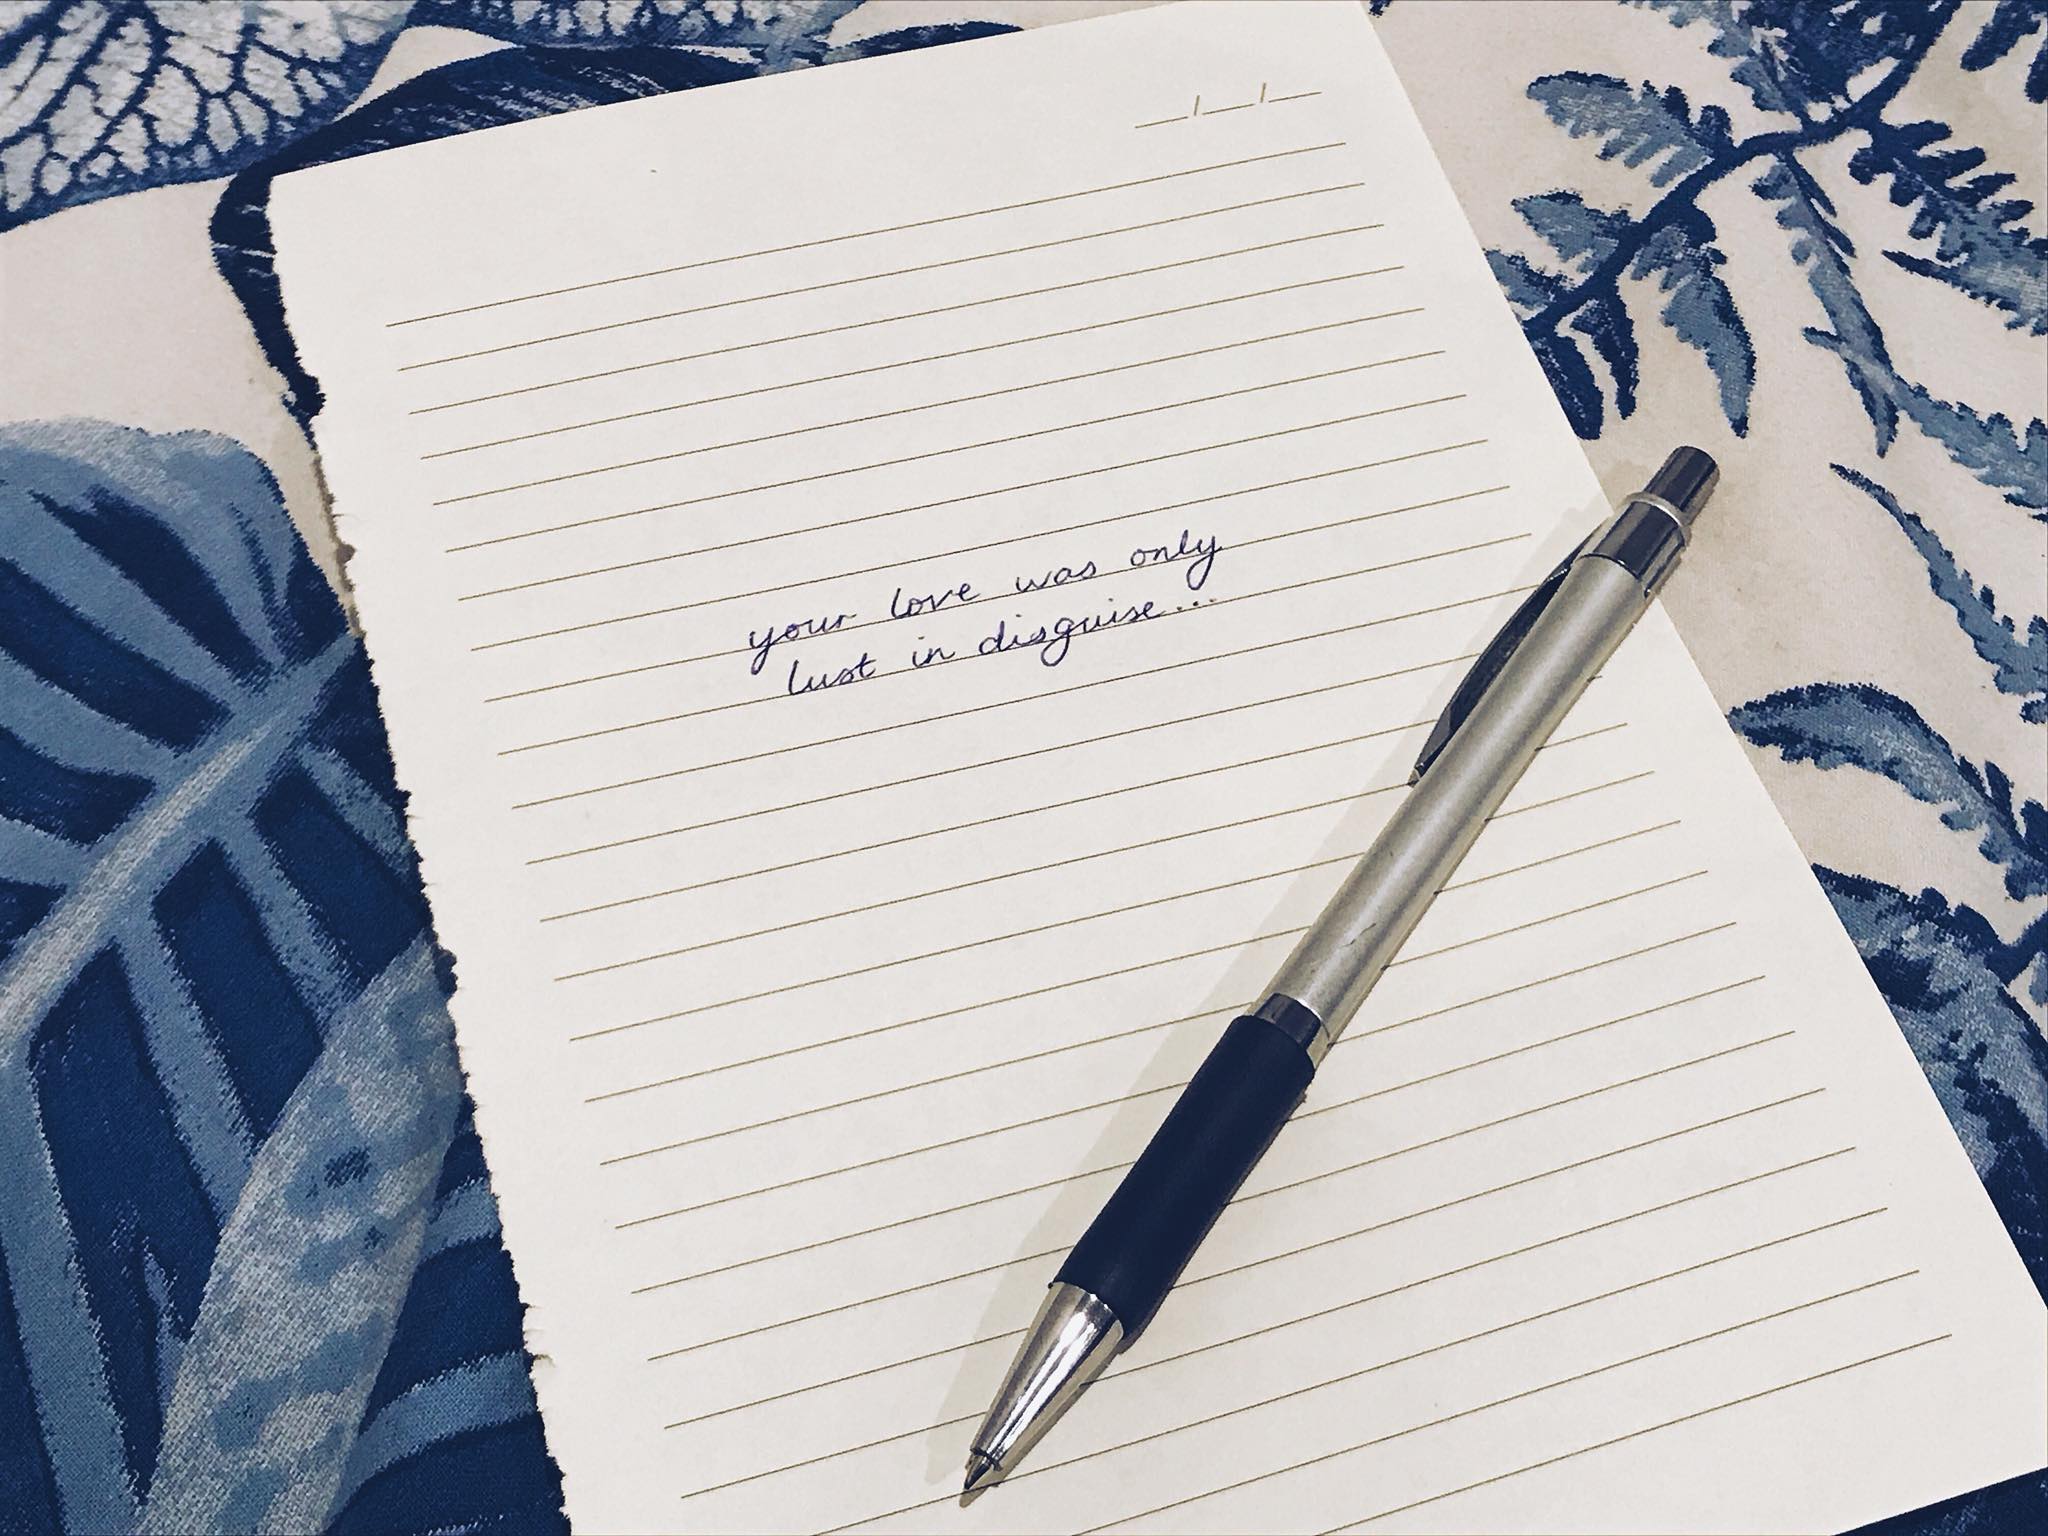 your love was only
lust in disguise...